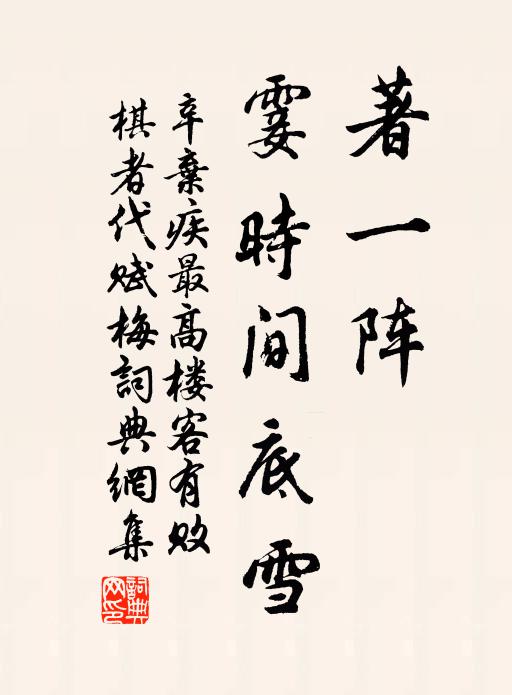 著一阵
霎時间底雪
辛棄疾最高楼客有败
棋者代赋梅詞典網集
詞典
网印